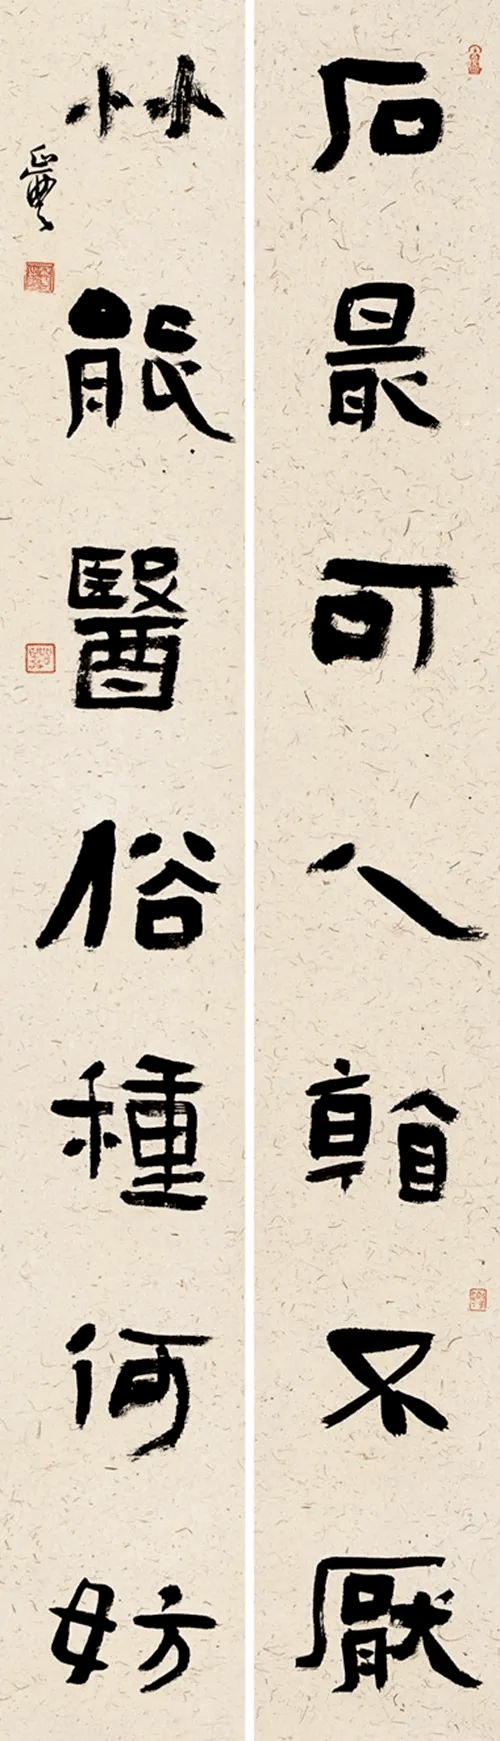 石最可人看不厭
竹能醫俗種何妨